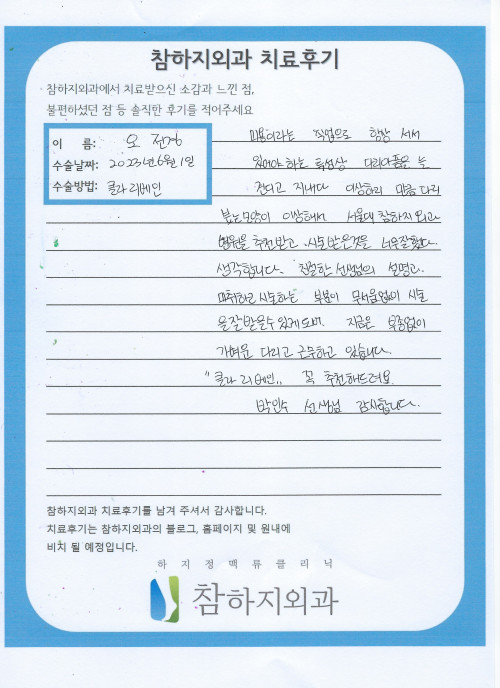 참하지외과 치료후기
참하지외과에서 치료받으신 소감과 느낀 점,
불편하셨던 점 등 솔직한 후기를 적어주세요
이 름: 오
수술날짜: 2023년 6월 1일
수술방법: 클라리베인
미용이라는 직업으로 항상 서서
있어야하는 특성상 다리아픔은 늘
견디고 지내다 이상하리 만큼 다리
붓는모양이 이상해서 서울대 참하지외과
병원을 추천받고 시술받은것을 너무잘했다
생각합니다. 친절한 선생님의 설명과
마취하고 시술하는 부분이 무서움없이 시술
을잘받을수있게되며, 지금은 부종없이
가벼운 다리로 근무하고 있습니다.
"클라리베인" 꼭 추천해드려요.
박인수 선생님 감사합니다.
참하지외과 치료후기를 남겨 주셔서 감사합니다.
치료후기는 참하지외과의 블로그, 홈페이지 및 원내에
비치 될 예정입니다.
하지정맥류클리닉
참하지외과